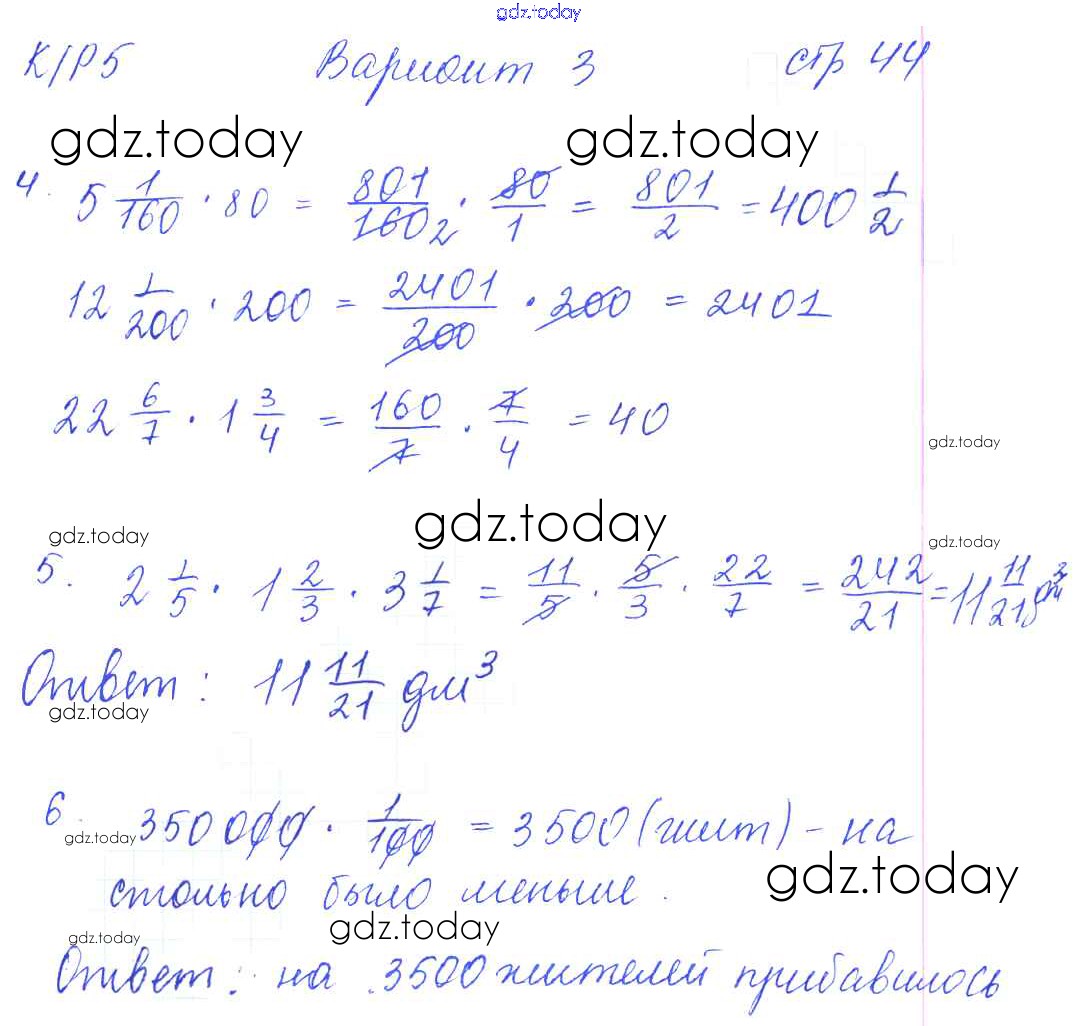 gdz.today
К/Р5 Вариант 3 стр 44
gdz.today gdz.today
4. 5 1/160 · 80 = 801/160 2 · 80/1 = 801/2 = 400 1/2
12 1/200 · 200 = 2401/200 · 200 = 2401
22 6/7 · 1 3/4 = 160/7 · 7/4 = 40
gdz.today
gdz.today
gdz.today gdz.today
5. 2 1/5 · 1 2/3 · 3 1/7 = 11/5 · 5/3 · 22/7 = 242/21 = 11 11/21 дм³
Ответ: 11 11/21 дм³
gdz.today
6. 350000 · 1/100 = 3500 (жит) - на
gdz.today
gdz.today
столько было меньше.
gdz.today
gdz.today
Ответ: на 3500 жителей прибавилось